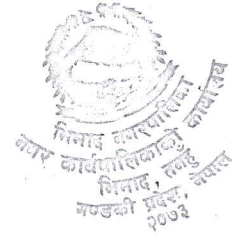 भिमाद नगरपालिका
नगर कार्यपालिकाको कार्यालय
भिमाद, तनहुँ
गण्डकी प्रदेश, नेपाल
२०७३